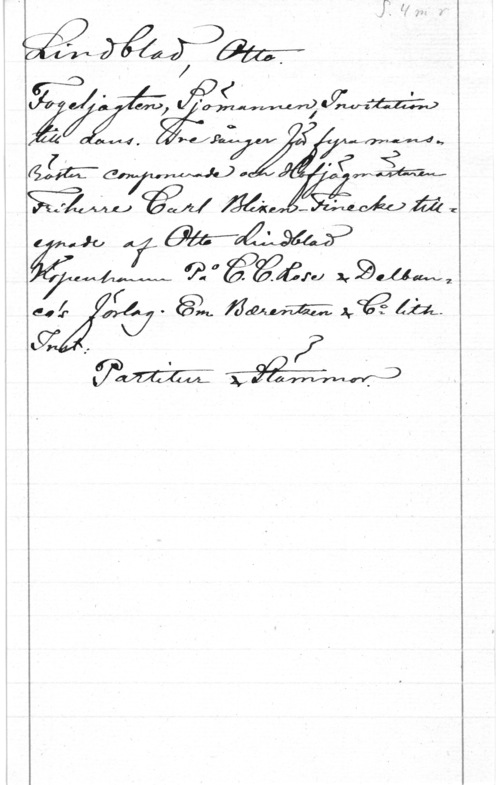 S. 4 m r
Lindblad, Otto.
Fogeljagten, Sjömannen, Invitation
till dans. Tre sånger för fyra mans-
röster componerade och Hofjägmästaren
Friherre Carl Blixen-Finecke till-
egnade af Otto Lindblad
Köpenhamn På C.C. Lose & Delban-
co's förlag. Em. Bærentzen & Co: lith.
Inst.
Partitur & Stämmor.